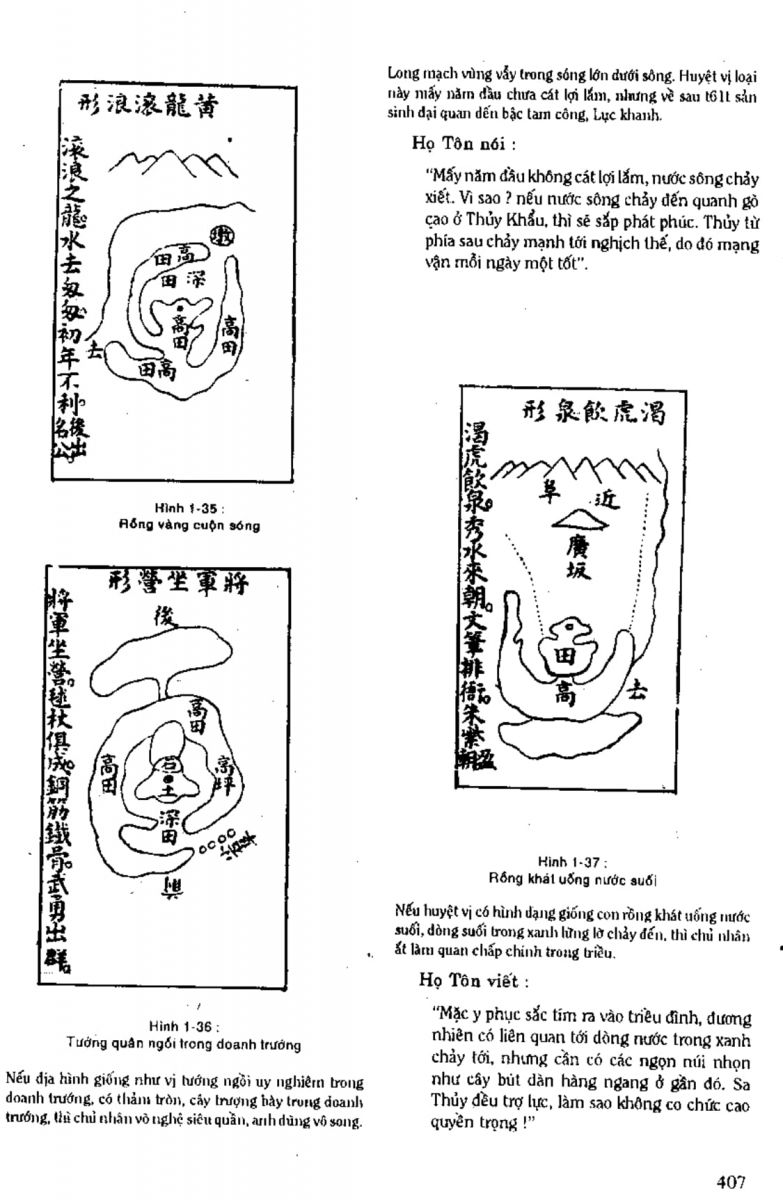 黃龍滾浪形
滾浪之龍水去匆匆初年不利後出名公
墩
高田
深田
高田
高田
高田
去
Hình 1-35 :
Rồng vàng cuộn sóng
將軍坐營形
將軍坐營毬杖俱成鋼筋鐵骨武勇出群
後
高田
高田
高坪
土
深田
Hình 1-36 :
Tướng quân ngồi trong doanh trướng
Nếu địa hình giống như vị tướng ngồi uy nghiêm trong
doanh trướng, có thảm tròn, cây trượng bày trong doanh
trướng, thì chủ nhân võ nghệ siêu quần, anh dũng vô song.
Long mạch vùng vẫy trong sóng lớn dưới sông. Huyệt vị loại
này mấy năm đầu chưa cát lợi lắm, nhưng về sau t61t sản
sinh đại quan đến bậc tam công, Lục khanh.
Họ Tôn nói :
"Mấy năm đầu không cát lợi lắm, nước sông chảy
xiết. Vì sao ? nếu nước sông chảy đến quanh gò
cao ở Thủy Khẩu, thì sẽ sắp phát phúc. Thủy từ
phía sau chảy mạnh tới nghịch thế, do đó mạng
vận mỗi ngày một tốt".
渴虎飲泉形
渴虎飲泉秀水來朝文筆排衙朱紫盈朝
近阜
廣坂
田
高
去
Hình 1-37 :
Rồng khát uống nước suối
Nếu huyệt vị có hình dạng giống con rồng khát uống nước
suối, dòng suối trong xanh lững lờ chảy đến, thì chủ nhân
ắt làm quan chấp chính trong triều.
Họ Tôn viết :
"Mặc y phục sắc tím ra vào triều đình, đương
nhiên có liên quan tới dòng nước trong xanh
chảy tới, nhưng cần có các ngọn núi nhọn
như cây bút dàn hàng ngang ở gần đó. Sa
Thủy đều trợ lực, làm sao không co chức cao
quyền trọng !"
407